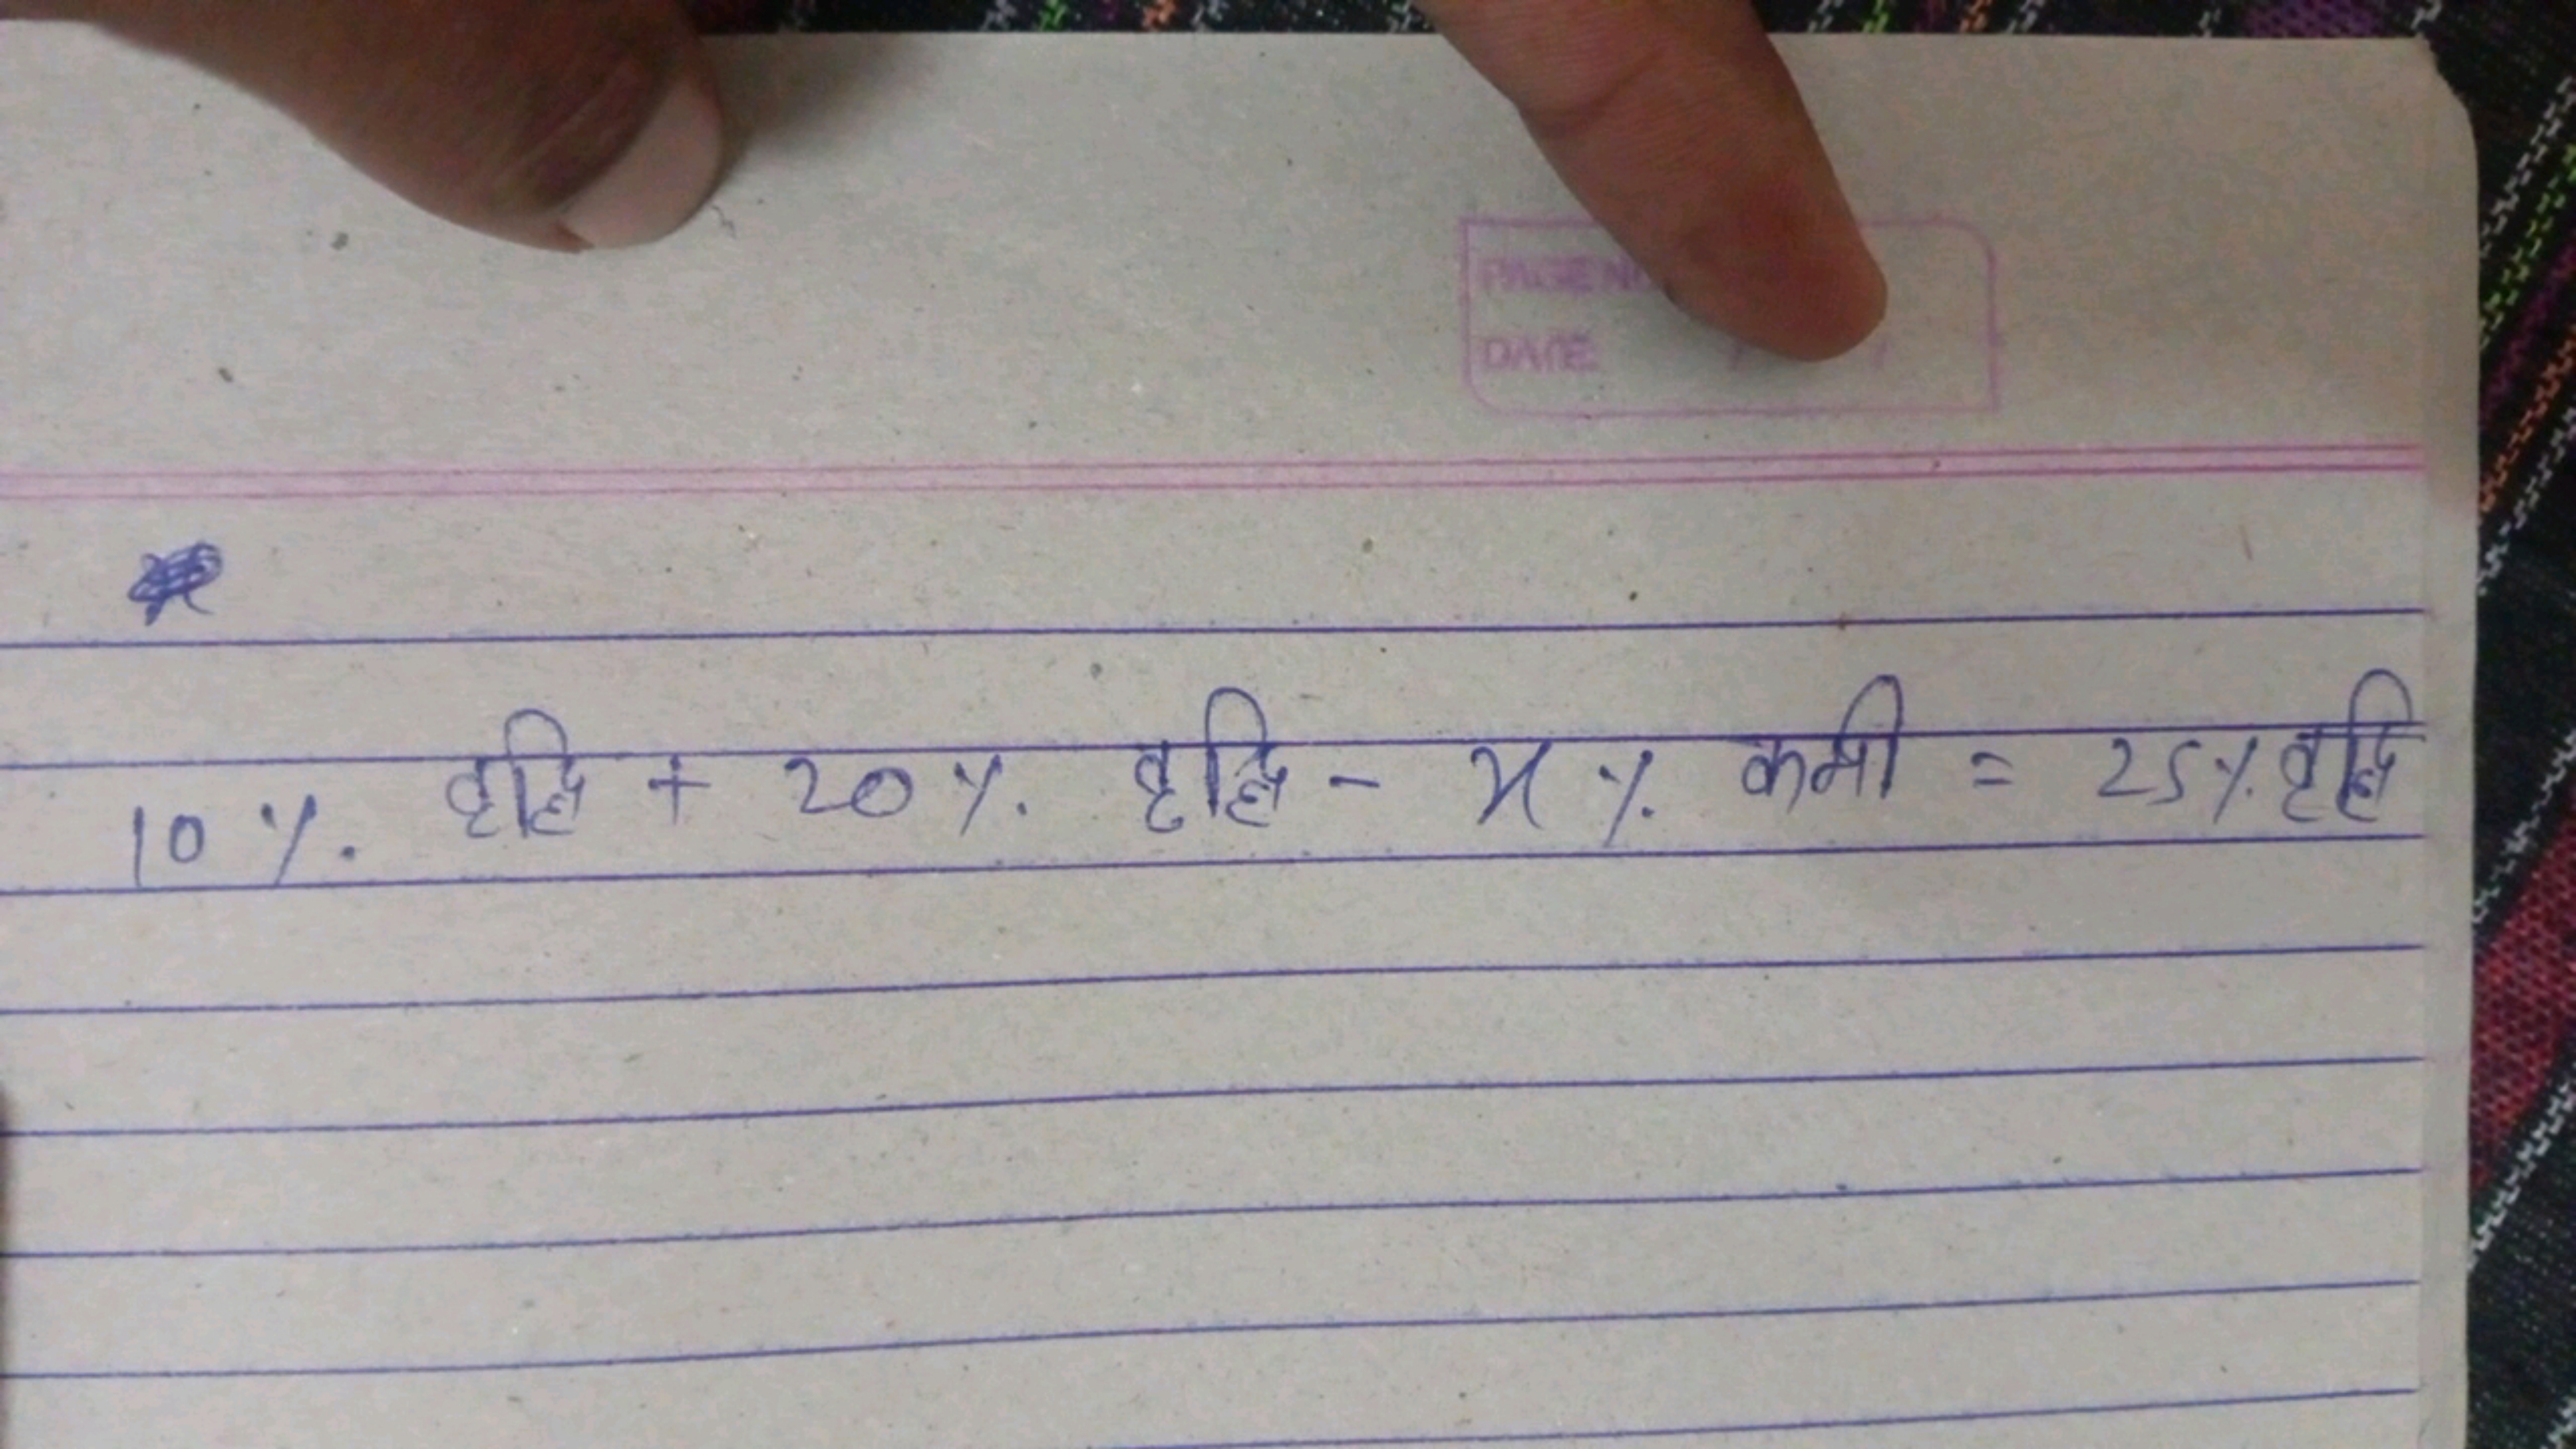 PAGE NO
DATE / /
10 %. वृद्धि + 20 %. वृद्धि - x %. कमी = 25 %. वृद्धि